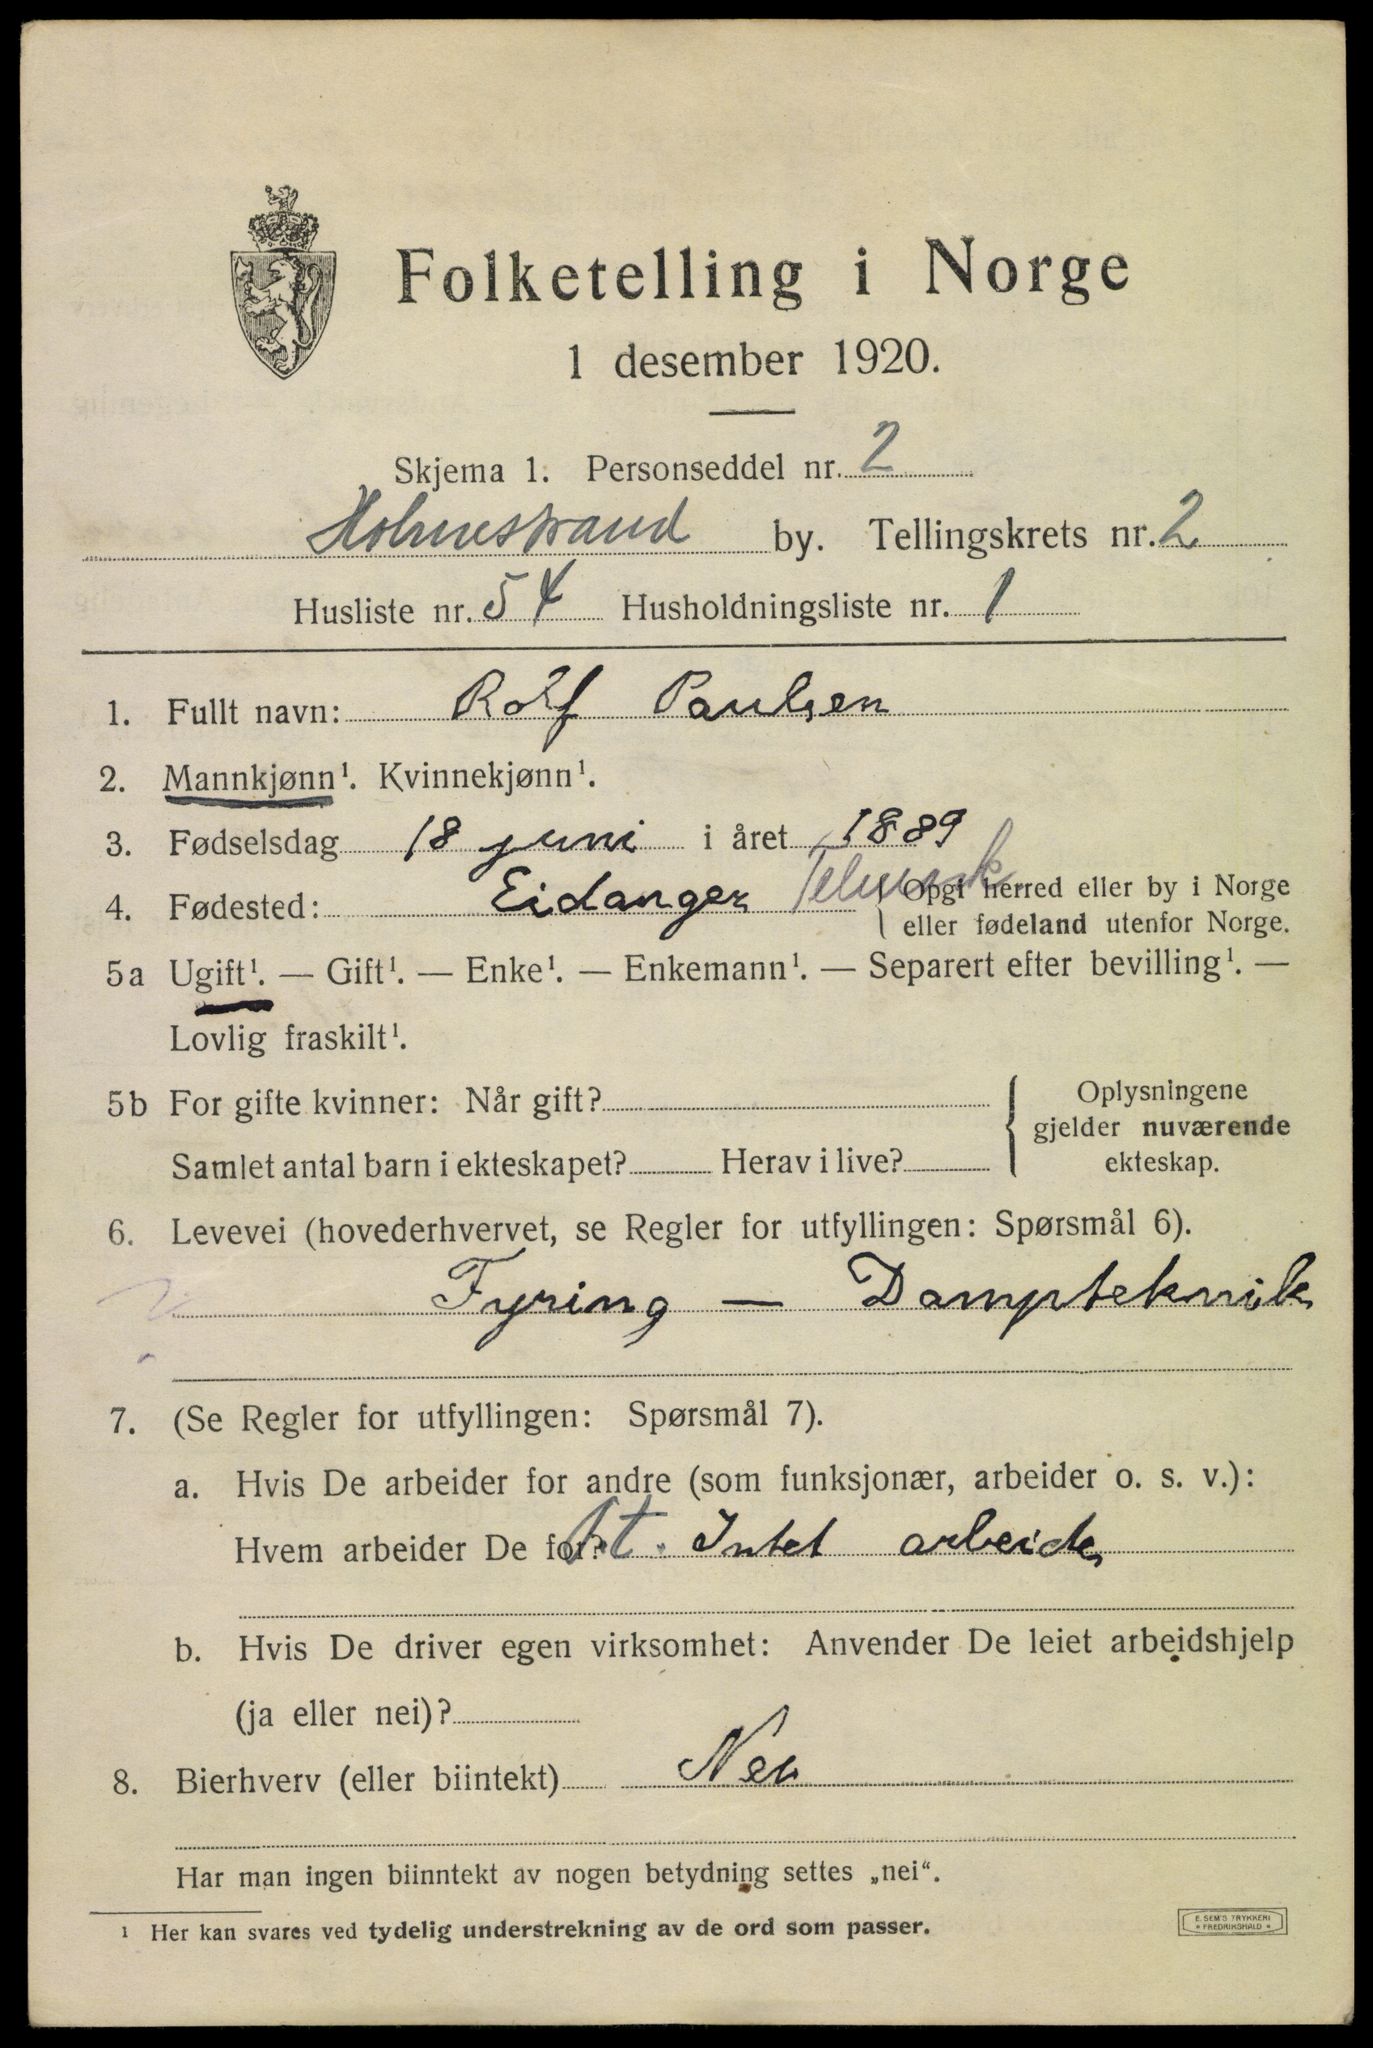 Folketelling i Norge
1 desember 1920.
Skjema 1. Personseddel nr. 2
Holmestrand by. Tellingskrets nr. 2
Husliste nr. 54 Husholdningsliste nr. 1
1. Fullt navn: Rolf Paulsen
2. Mannkjønn¹. Kvinnekjønn¹.
3. Fødselsdag 18 juni i året 1889
4. Fødested: Eidanger Telemark { Opgi herred eller by i Norge
eller fødeland utenfor Norge.
5a Ugift¹. — Gift¹. — Enke¹. — Enkemann¹. — Separert efter bevilling¹. —
Lovlig fraskilt¹.
5b For gifte kvinner: Når gift?
Samlet antal barn i ekteskapet? Herav i live?
{ Oplysningene
gjelder nuværende
ekteskap.
6. Levevei (hovederhvervet, se Regler for utfyllingen: Spørsmål 6).
Fyring — Dampteknik
7. (Se Regler for utfyllingen: Spørsmål 7).
a. Hvis De arbeider for andre (som funksjonær, arbeider o. s. v.):
Hvem arbeider De for? Intet arbeide
b. Hvis De driver egen virksomhet: Anvender De leiet arbeidshjelp
(ja eller nei)?
8. Bierhverv (eller biintekt) Nei
Har man ingen biinntekt av nogen betydning settes „nei“.
¹ Her kan svares ved tydelig understrekning av de ord som passer.
E. SEM'S TRYKKERI
* FREDRIKSHALD *